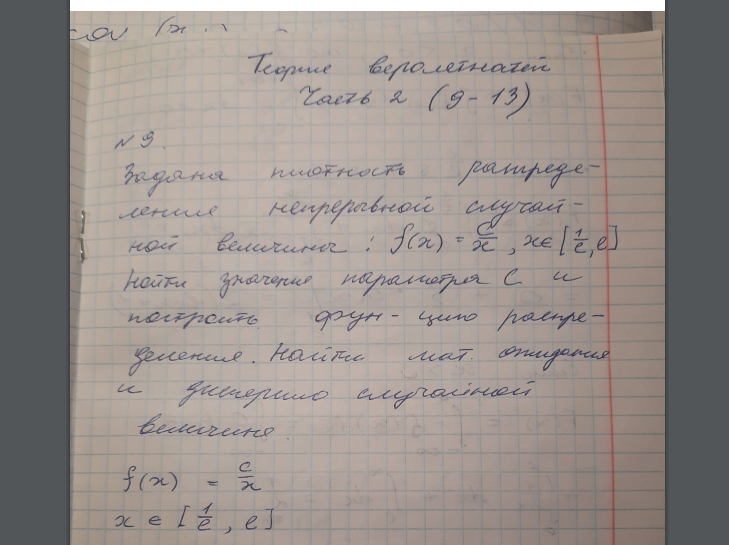 cov (x
Теория вероятностей
Часть 2 (9-13)
№9.
Задана плотность распреде-
ления непрерывной случай-
ной величины: f(x) = c/x, x∈[1/e, e]
Найти значение параметра C и
построить фун-цию распре-
деления. Найти мат. ожидания
и дисперсию случайной
величине.
f(x) = c/x
x ∈ [1/e, e]